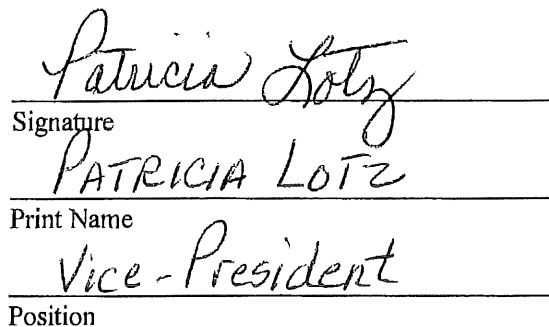 Patricia Lotz
Signature
PATRICIA LOTZ
Print Name
Vice-President
Position